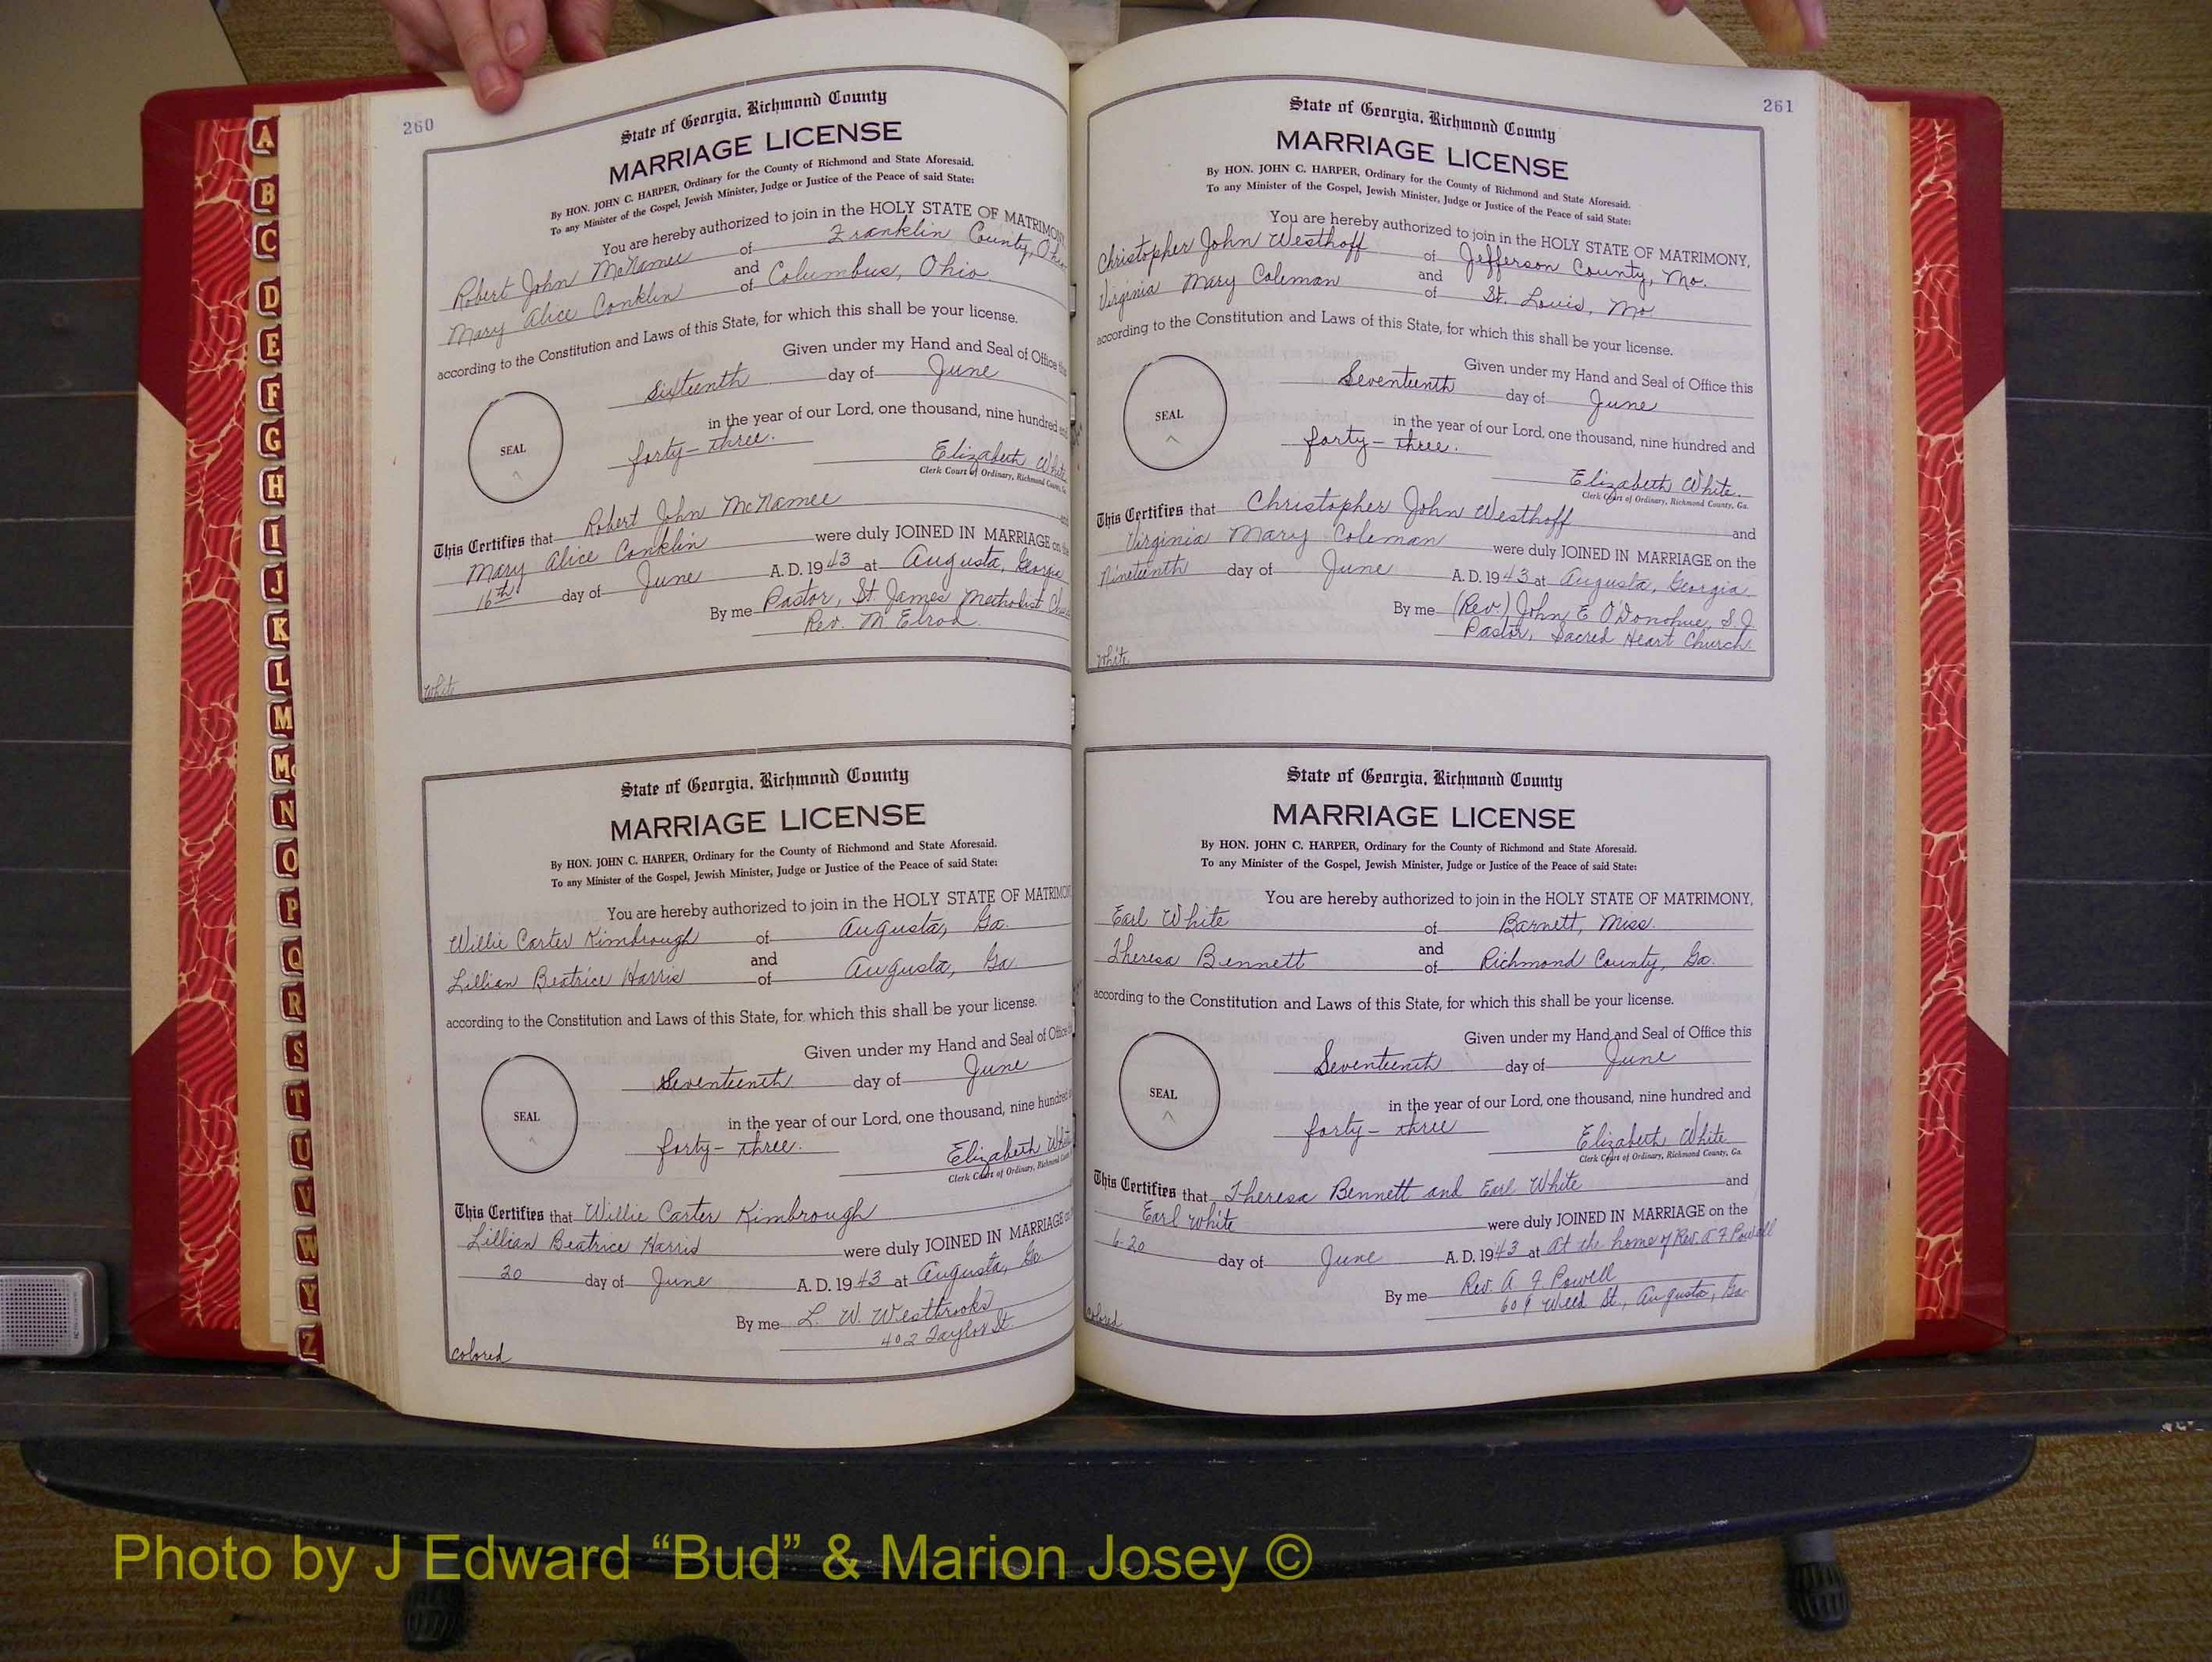 260
State of Georgia, Richmond County
MARRIAGE LICENSE
By HON. JOHN C. HARPER, Ordinary for the County of Richmond and State Aforesaid.
To any Minister of the Gospel, Jewish Minister, Judge or Justice of the Peace of said State:
You are hereby authorized to join in the HOLY STATE OF MATRIMONY,
Robert John McNamee of Franklin County, Ohio
and
Mary Alice Conklin of Columbus, Ohio.
according to the Constitution and Laws of this State, for which this shall be your license.
Given under my Hand and Seal of Office
Sixteenth day of June
in the year of our Lord, one thousand, nine hundred
SEAL
forty-three.
Elizabeth White
Clerk Court of Ordinary, Richmond County,
This Certifies that Robert John McNamee
Mary Alice Conklin were duly JOINED IN MARRIAGE on
16th day of June A. D. 1943 at Augusta, Georgia
By me Pastor, St. James Methodist
Rev. M Elrod
White
State of Georgia, Richmond County
MARRIAGE LICENSE
By HON. JOHN C. HARPER, Ordinary for the County of Richmond and State Aforesaid.
To any Minister of the Gospel, Jewish Minister, Judge or Justice of the Peace of said State:
You are hereby authorized to join in the HOLY STATE OF MATRIMON
Willie Carter Kimbrough of Augusta, Ga.
and
Lillian Beatrice Harris of Augusta, Ga
according to the Constitution and Laws of this State, for which this shall be your license.
Given under my Hand and Seal of Office
Seventeenth day of June
in the year of our Lord, one thousand, nine hundred
SEAL
forty-three.
Elizabeth White
Clerk Court of Ordinary, Richmond
This Certifies that Willie Carter Kimbrough
Lillian Beatrice Harris were duly JOINED IN MARRIAGE
20 day of June A. D. 1943 at Augusta, Ga
By me L. W. Westbrooks
402 Taylor St.
colored
261
State of Georgia, Richmond County
MARRIAGE LICENSE
By HON. JOHN C. HARPER, Ordinary for the County of Richmond and State Aforesaid.
To any Minister of the Gospel, Jewish Minister, Judge or Justice of the Peace of said State:
You are hereby authorized to join in the HOLY STATE OF MATRIMONY,
Christopher John Westhoff of Jefferson County, Mo.
and
Virginia Mary Coleman of St. Louis, Mo
according to the Constitution and Laws of this State, for which this shall be your license.
Given under my Hand and Seal of Office this
Seventeenth day of June
in the year of our Lord, one thousand, nine hundred and
SEAL
forty-three.
Elizabeth White.
Clerk Court of Ordinary, Richmond County, Ga.
This Certifies that Christopher John Westhoff and
Virginia Mary Coleman were duly JOINED IN MARRIAGE on the
Nineteenth day of June A. D. 1943 at Augusta, Georgia
By me (Rev.) John E O'Donohue, S.J.
Pastor, Sacred Heart Church
White
State of Georgia, Richmond County
MARRIAGE LICENSE
By HON. JOHN C. HARPER, Ordinary for the County of Richmond and State Aforesaid.
To any Minister of the Gospel, Jewish Minister, Judge or Justice of the Peace of said State:
You are hereby authorized to join in the HOLY STATE OF MATRIMONY,
Earl White of Barnett, Miss.
and
Theresa Bennett of Richmond County, Ga.
according to the Constitution and Laws of this State, for which this shall be your license.
Given under my Hand and Seal of Office this
Seventeenth day of June
in the year of our Lord, one thousand, nine hundred and
SEAL
forty-three
Elizabeth White
Clerk Court of Ordinary, Richmond County, Ga.
This Certifies that Theresa Bennett and Earl White and
Earl White were duly JOINED IN MARRIAGE on the
6-20 day of June A. D. 1943 at At the home of Rev. A F Powell
By me Rev. A. F. Powell
609 Weed St., Augusta, Ga
colored
A
B
C
D
E
F
G
H
I
J
K
L
M
Mc
N
O
P
Q
R
S
T
U
V
W
Y
Z
Photo by J Edward “Bud” & Marion Josey ©